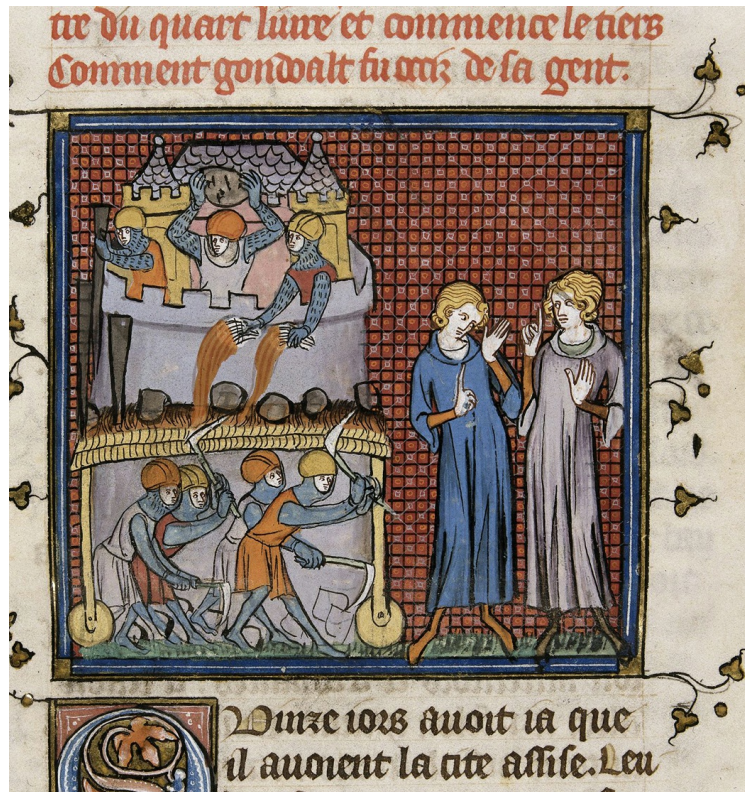 tre du quart liure et commence le tiers
Comment gondoalt fu occiz de sa gent.
Quinze iors auoit ia que
il auoient la cite assise. Leu